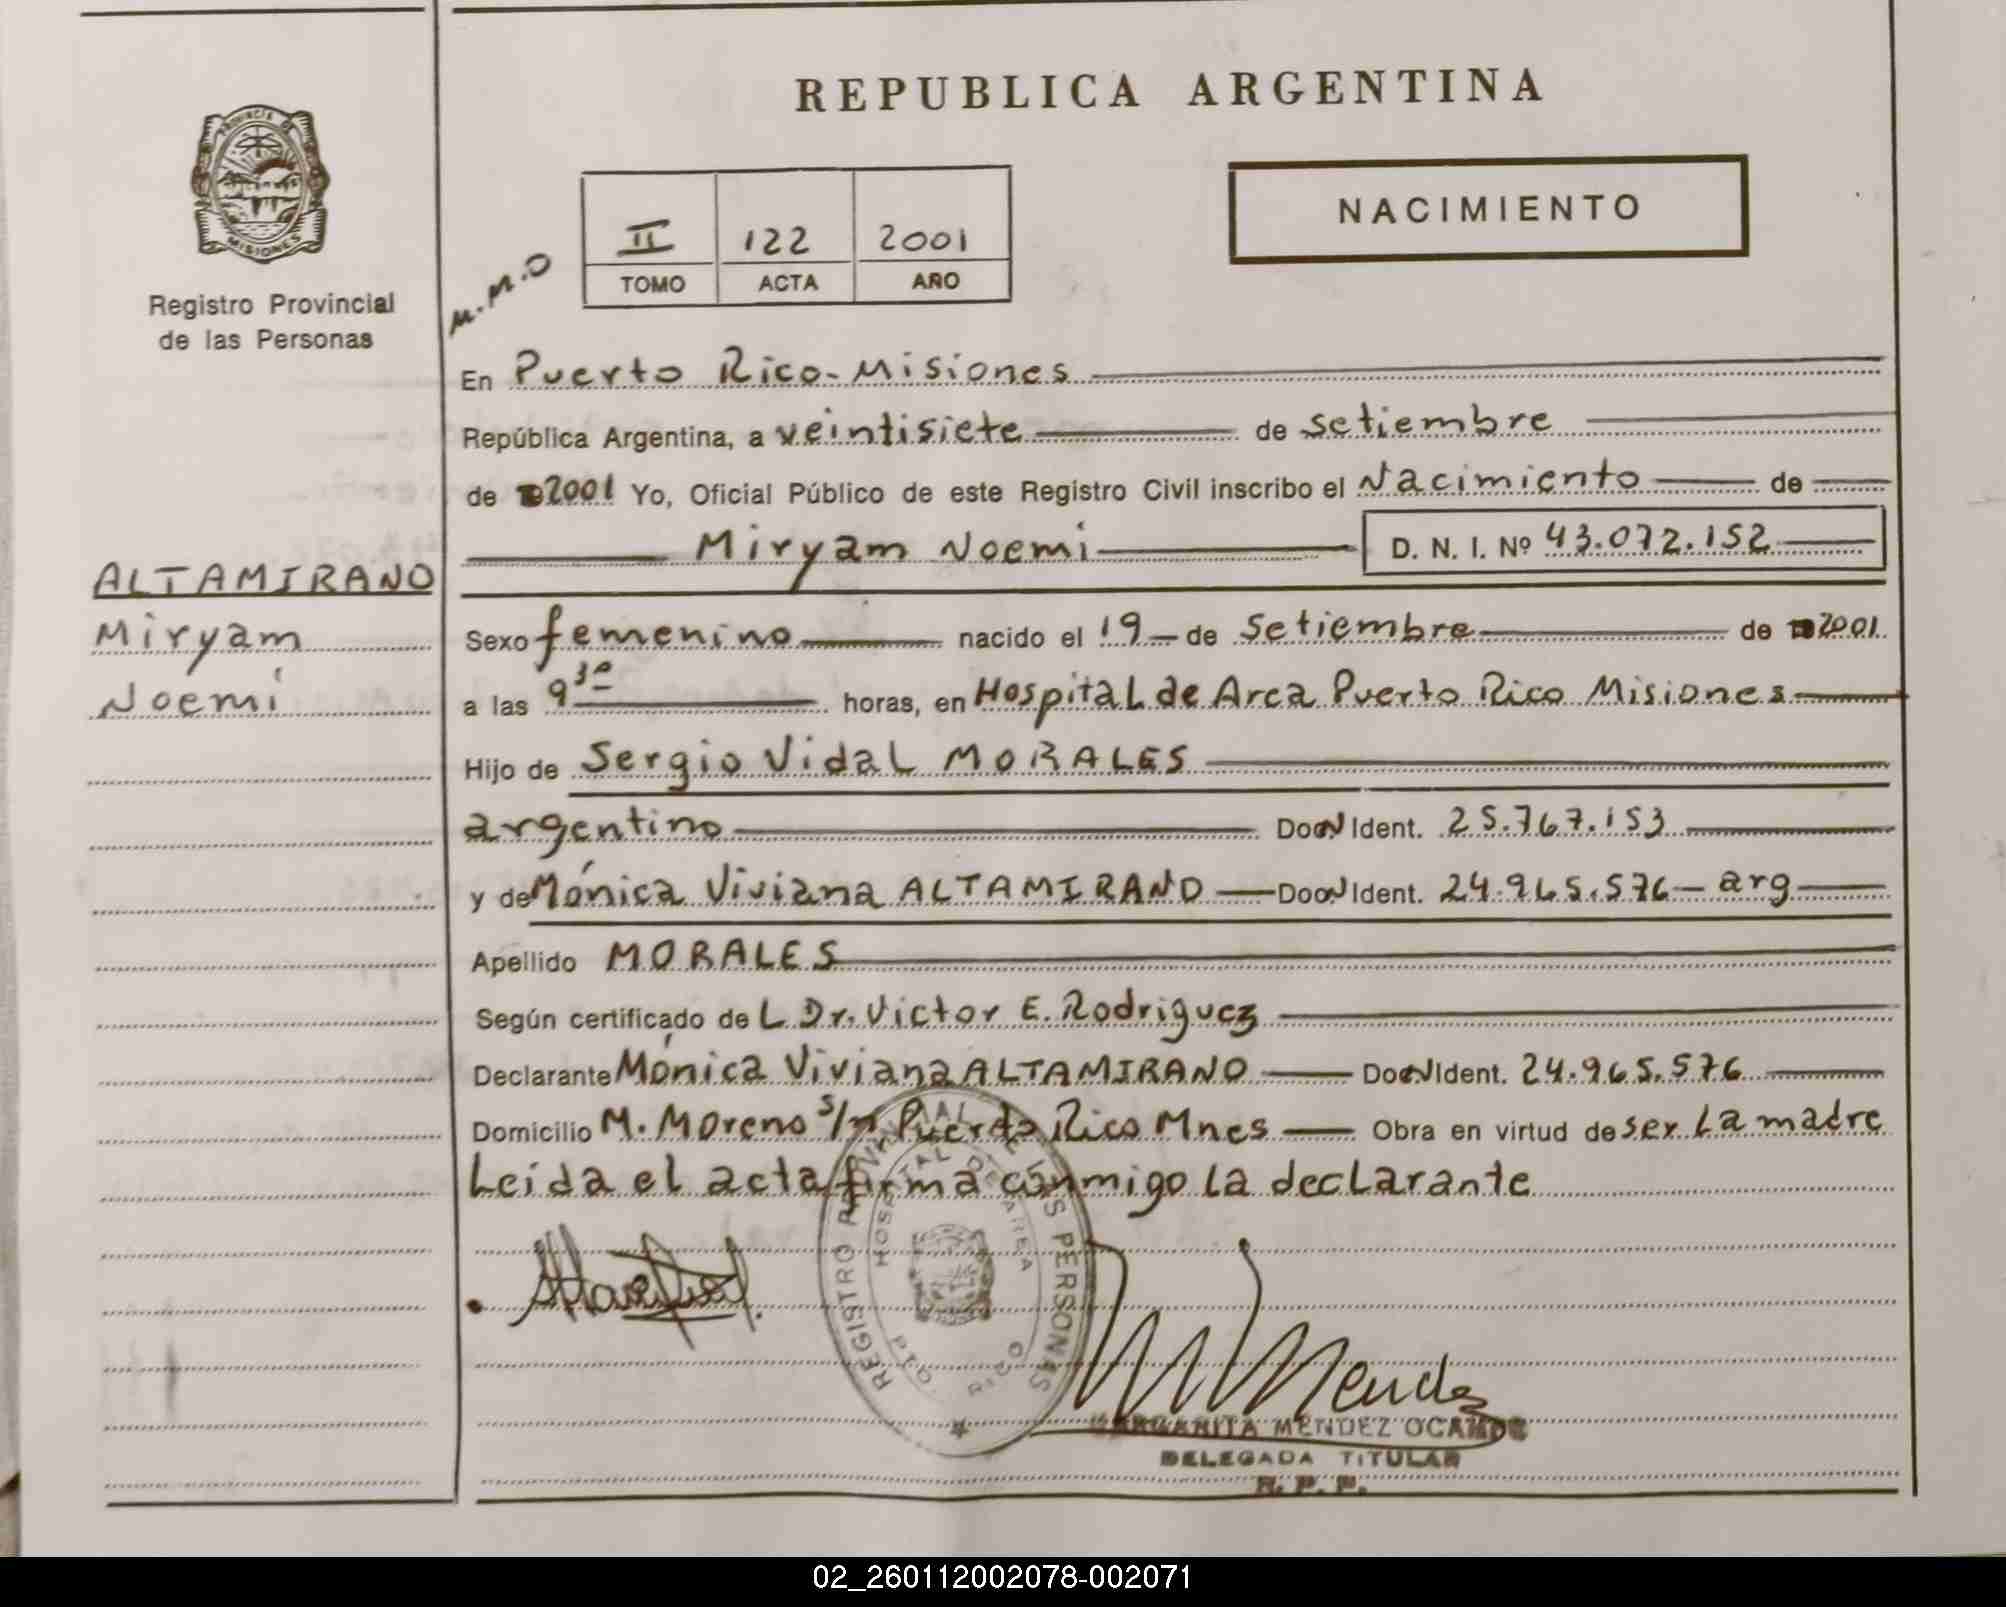 REPUBLICA ARGENTINA
PROVINCIA DE MISIONES
Registro Provincial
de las Personas
NACIMIENTO
II 122 2001
TOMO ACTA AÑO
M.M.O
En Puerto Rico-Misiones
República Argentina, a veintisiete de setiembre
de 2001 Yo, Oficial Público de este Registro Civil inscribo el Nacimiento de
Miryam Noemi D. N. I. Nº 43.072.152
ALTAMIRANO
Miryam
Noemi
Sexo femenino nacido el 19 de Setiembre de 2001
a las 9 30 horas, en Hospital de Area Puerto Rico Misiones
Hijo de Sergio Vidal MORALES
argentino Doc N Ident. 25.767.153
y de Mónica Viviana ALTAMIRANO Doc N Ident. 24.965.576 - arg
Apellido MORALES
Según certificado de L Dr. Victor E. Rodriguez
Declarante Mónica Viviana ALTAMIRANO Doc N Ident. 24.965.576
Domicilio M. Moreno s/n Puerto Rico Mnes Obra en virtud de ser La madre
Leída el acta firma conmigo la declarante
REGISTRO PROVINCIAL DE LAS PERSONAS
HOSPITAL DE AREA
PTO. RICO
Mendez
MARGARITA MENDEZ OCAMPO
DELEGADA TITULAR
R. P. P.
02_260112002078-002071